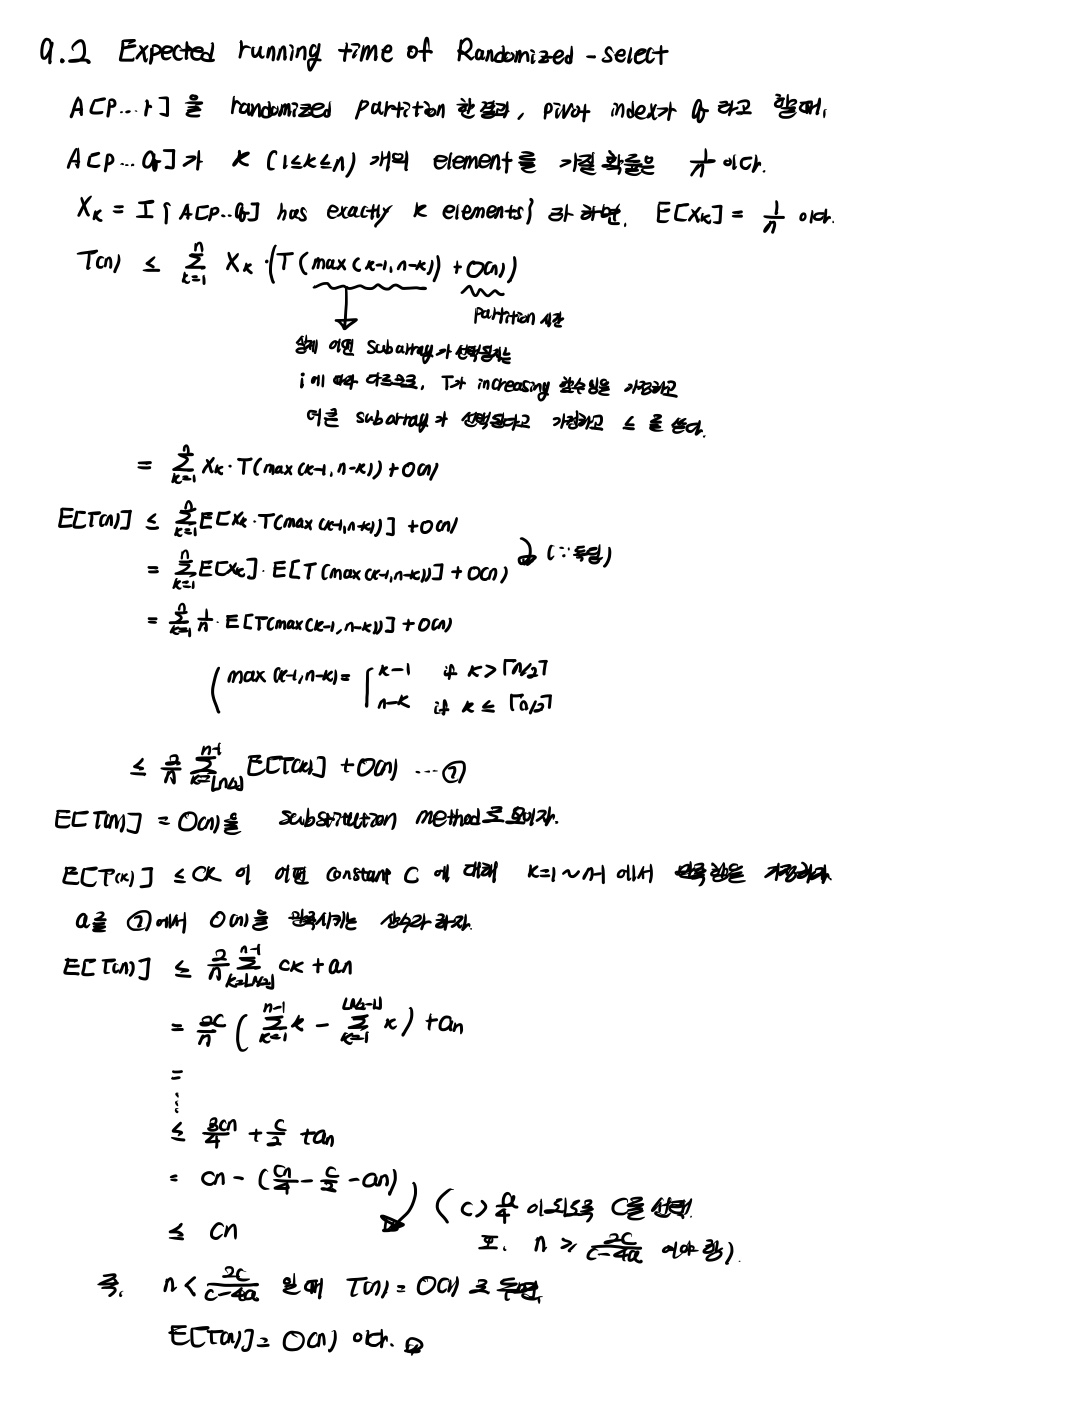 9.2 Expected running time of Randomized-select
A[p...r]을 randomized partition 한 결과, pivot index가 q 라고 할 때,
A[p...q]가 k (1≤k≤n) 개의 element를 가질 확률은 1/n 이다.
X_k = I{A[p..q] has exactly k elements} 라 하면, E[X_k] = 1/n 이다.
T(n) ≤ Σ_{k=1}^{n} X_k · (T(max(k-1, n-k)) + O(n))
partition 시간
실제 어떤 subarray가 선택될지는
i에 따라 다르므로, T가 increasing 함수임을 가정하고
더 큰 subarray가 선택된다고 가정하고 ≤ 를 쓴다.
= Σ_{k=1}^{n} X_k · T(max(k-1, n-k)) + O(n)
E[T(n)] ≤ Σ_{k=1}^{n} E[X_k · T(max(k-1, n-k))] + O(n)
= Σ_{k=1}^{n} E[X_k] · E[T(max(k-1, n-k))] + O(n) (∵ 독립)
= Σ_{k=1}^{n} 1/n · E[T(max(k-1, n-k))] + O(n)
( max(k-1, n-k) = { k-1 if k > ⌈n/2⌉
n-k if k ≤ ⌈n/2⌉
≤ 2/n Σ_{k=⌊n/2⌋}^{n-1} E[T(k)] + O(n) ... ①
E[T(n)] = O(n)을 substitution method로 보이자.
E[T(k)] ≤ ck 이 어떤 constant c 에 대해 k=1~n-1 에서 만족함을 가정하자
a를 ①에서 O(n)을 만족시키는 상수라 하자.
E[T(n)] ≤ 2/n Σ_{k=⌊n/2⌋}^{n-1} ck + an
= 2c/n ( Σ_{k=1}^{n-1} k - Σ_{k=1}^{⌊n/2-1⌋} k ) + an
=
⋮
≤ 3cn/4 + c/2 + an
= cn - (cn/4 - c/2 - an)
≤ cn ( c > a/4 이 되도록 c를 선택.
또, n ≥ 2c/(c-4a) 이어야 함).
즉, n < 2c/(c-4a) 일 때 T(n) = O(1) 로 두면,
E[T(n)] = O(n) 이다. □